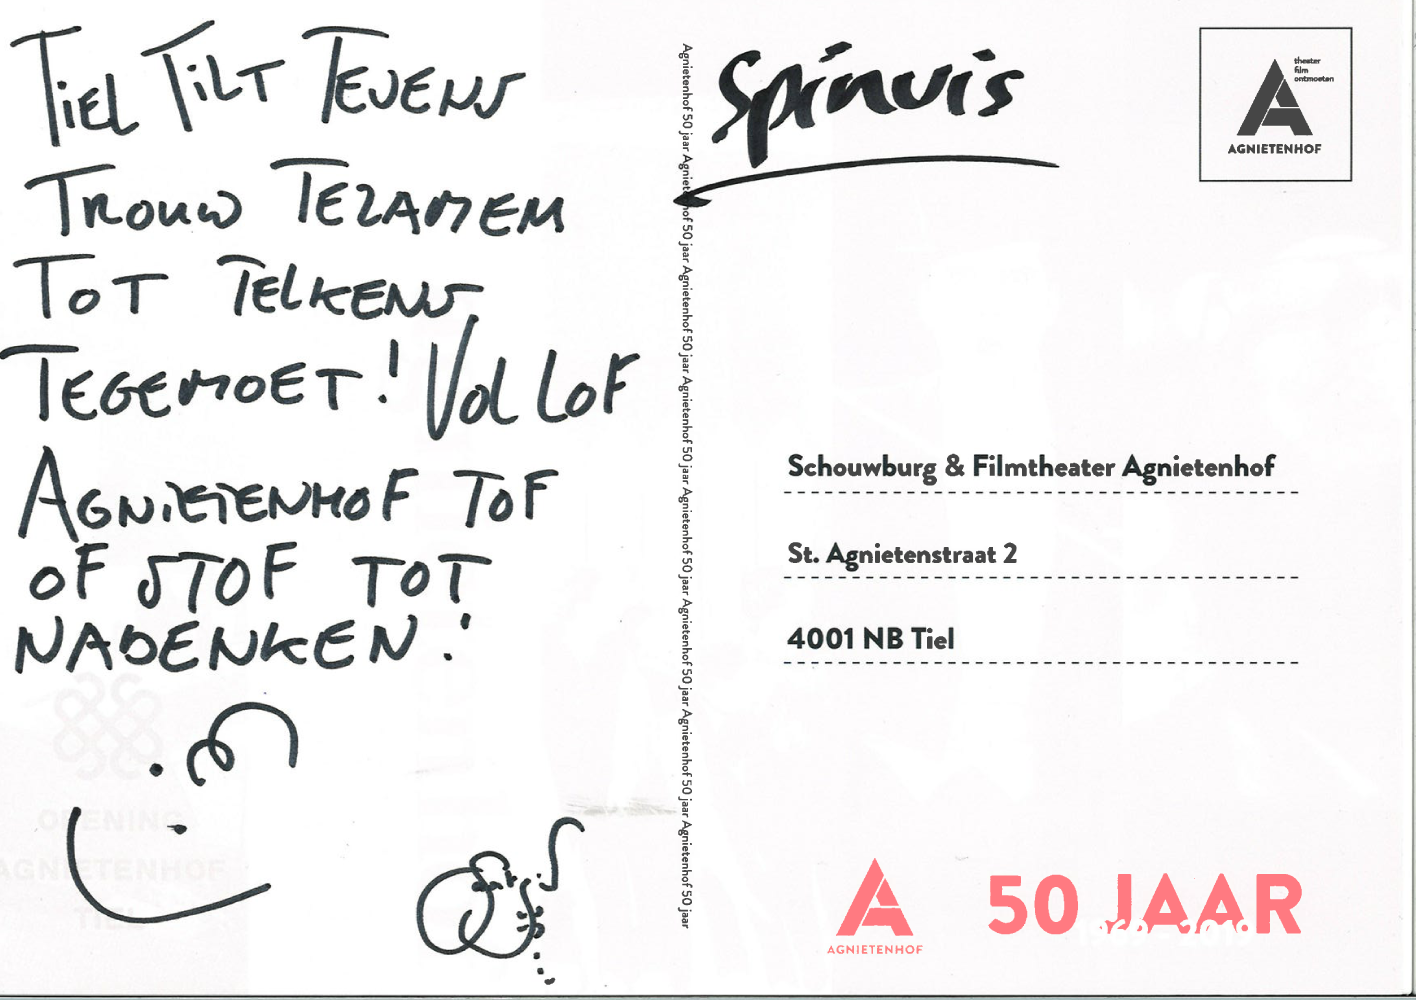 TIEL TILT TEVENS
TROUW TEZAMEM
TOT TELKENS
TEGEMOET! VOL LOF
AGNIETENHOF TOF
OF STOF TOT
NADENKEN!
Agnietenhof 50 jaar Agnietenhof 50 jaar Agnietenhof 50 jaar Agnietenhof 50 jaar Agnietenhof 50 jaar Agnietenhof 50 jaar Agnietenhof 50 jaar Agnietenhof 50 jaar
Spinvis
theater
film
ontmoeten
AGNIETENHOF
Schouwburg & Filmtheater Agnietenhof
St. Agnietenstraat 2
4001 NB Tiel
AGNIETENHOF
50 JAAR
1969 - 2019
OPENING
AGNIETENHOF
TIEL